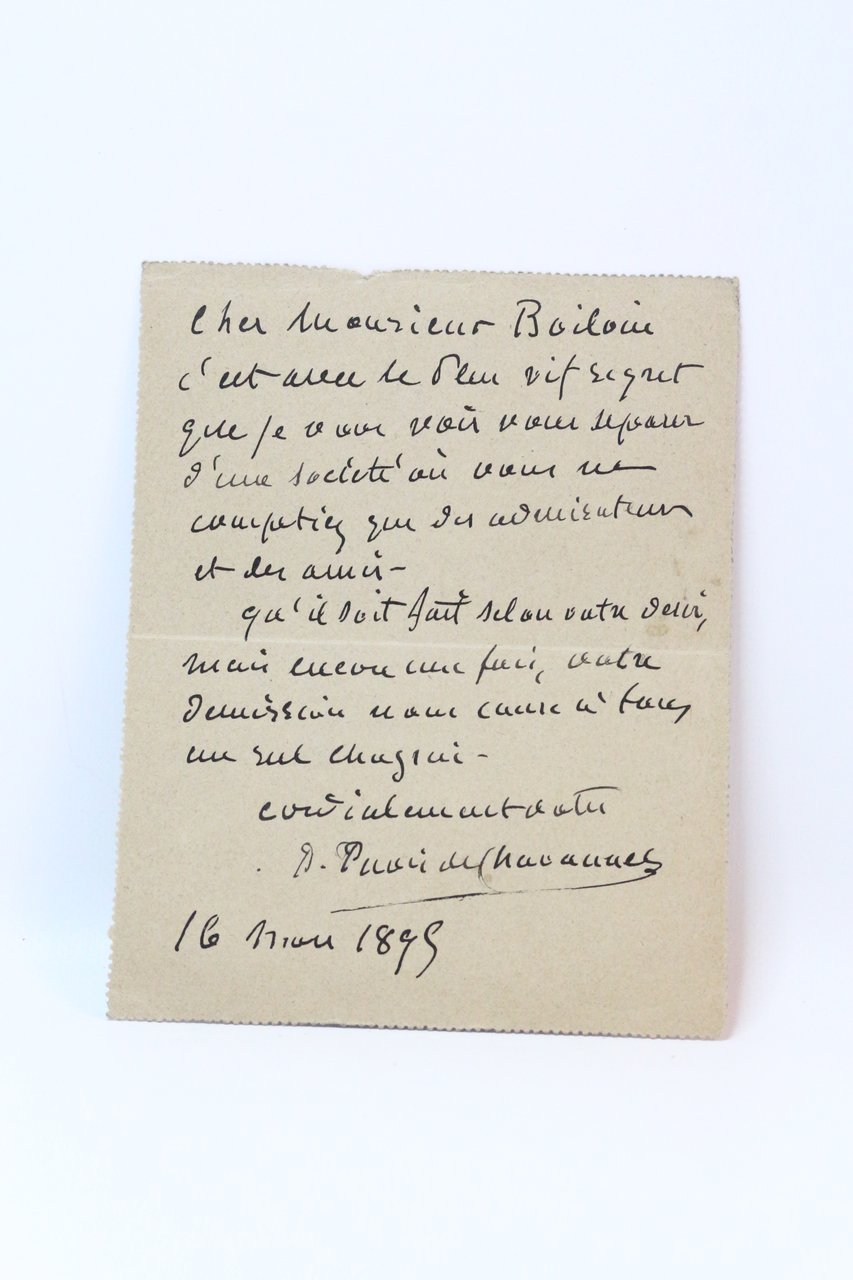 Cher Monsieur Boilvin
c'est avec le plus vif regret
que je vous vois vous séparer
d'une société où vous ne
comptiez que des admirateurs
et des amis -
qu'il soit fait selon votre désir,
mais encore une fois, votre
démission nous cause à tous
un réel chagrin -
cordialement votre
P. Puvis de Chavannes
16 mars 1895